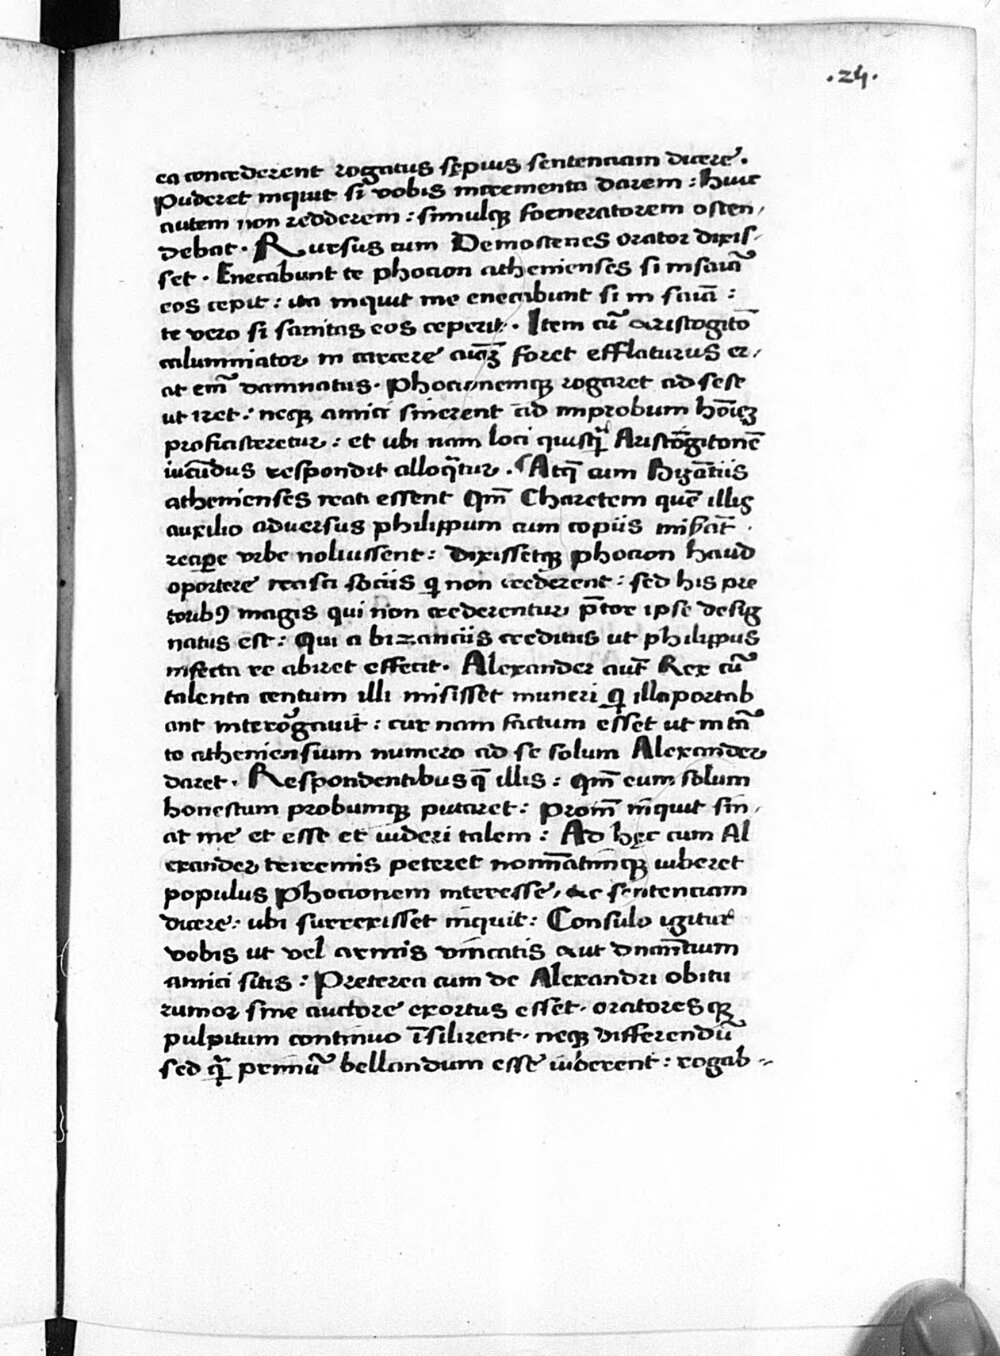 .24.
ea concederent rogatus sępius sentenciam dicere.
Puderet inquit si vobis incrementa darem: huic
autem non redderem: simulq; foeneratorem osten,
debat. Rursus cum Demostenes orator dixis,
set. Enecabunt te phocion athenienses si insaniā
eos cepit: ita inquit me enecabunt si in saniā:
te vero si sanitas eos ceperit. Item cū Aristogitō
calumniator in carcere aīaȝ foret efflaturus er,
at em̄ damnatus. Phocionemq; rogaret ad sese
ut iret: neq; amici sinerent ad improbum hōiēȝ
proficisceretur: et ubi nam loci quisq̄ Aristōgitonē
iucūdius respondit alloq̄tur. Atq̄ cum Bizātiis
athenienses irati essent qm̄ Charetem quē illis
auxilio adversus philippum cum copiis miserāt.
recipe urbe noluissent: dixissetq; phocion haud
oportere irasci sociis q̄ non crederent: sed his pre
torib9 magis qui non crederentur p̄tor ipse desig
natus est: Qui a bizanciis creditus ut philippus
infecta re abiret effecit. Alexander aut̄ Rex cū
talenta centum illi misisset muneri q̄ illa portab
ant interrōgavit: cur nam factum esset ut in tā
to atheniensium numero ad se solum Alexander
daret. Respondentibusq̄ illis: qm̄ eum solum
honestum probumq; putaret: Proin̄ inquit sin,
at me et esse et videri talem: Ad hęc cum Al
exander teiremis peteret nomīatimq; iuberet
populus phocionem interesse, ac sentenciam
dicere: ubi surrexisset inquit: Consulo igitur
vobis ut vel armis vincatis aut dn̄antium
amici sitis: Preterea cum de Alexandri obitu
rumor sine auctore exortus esset. oratoresq;
pulpitum continuo īsilirent. neq; differendū
sed q̄ primū bellandum esse iuberent: rogab-